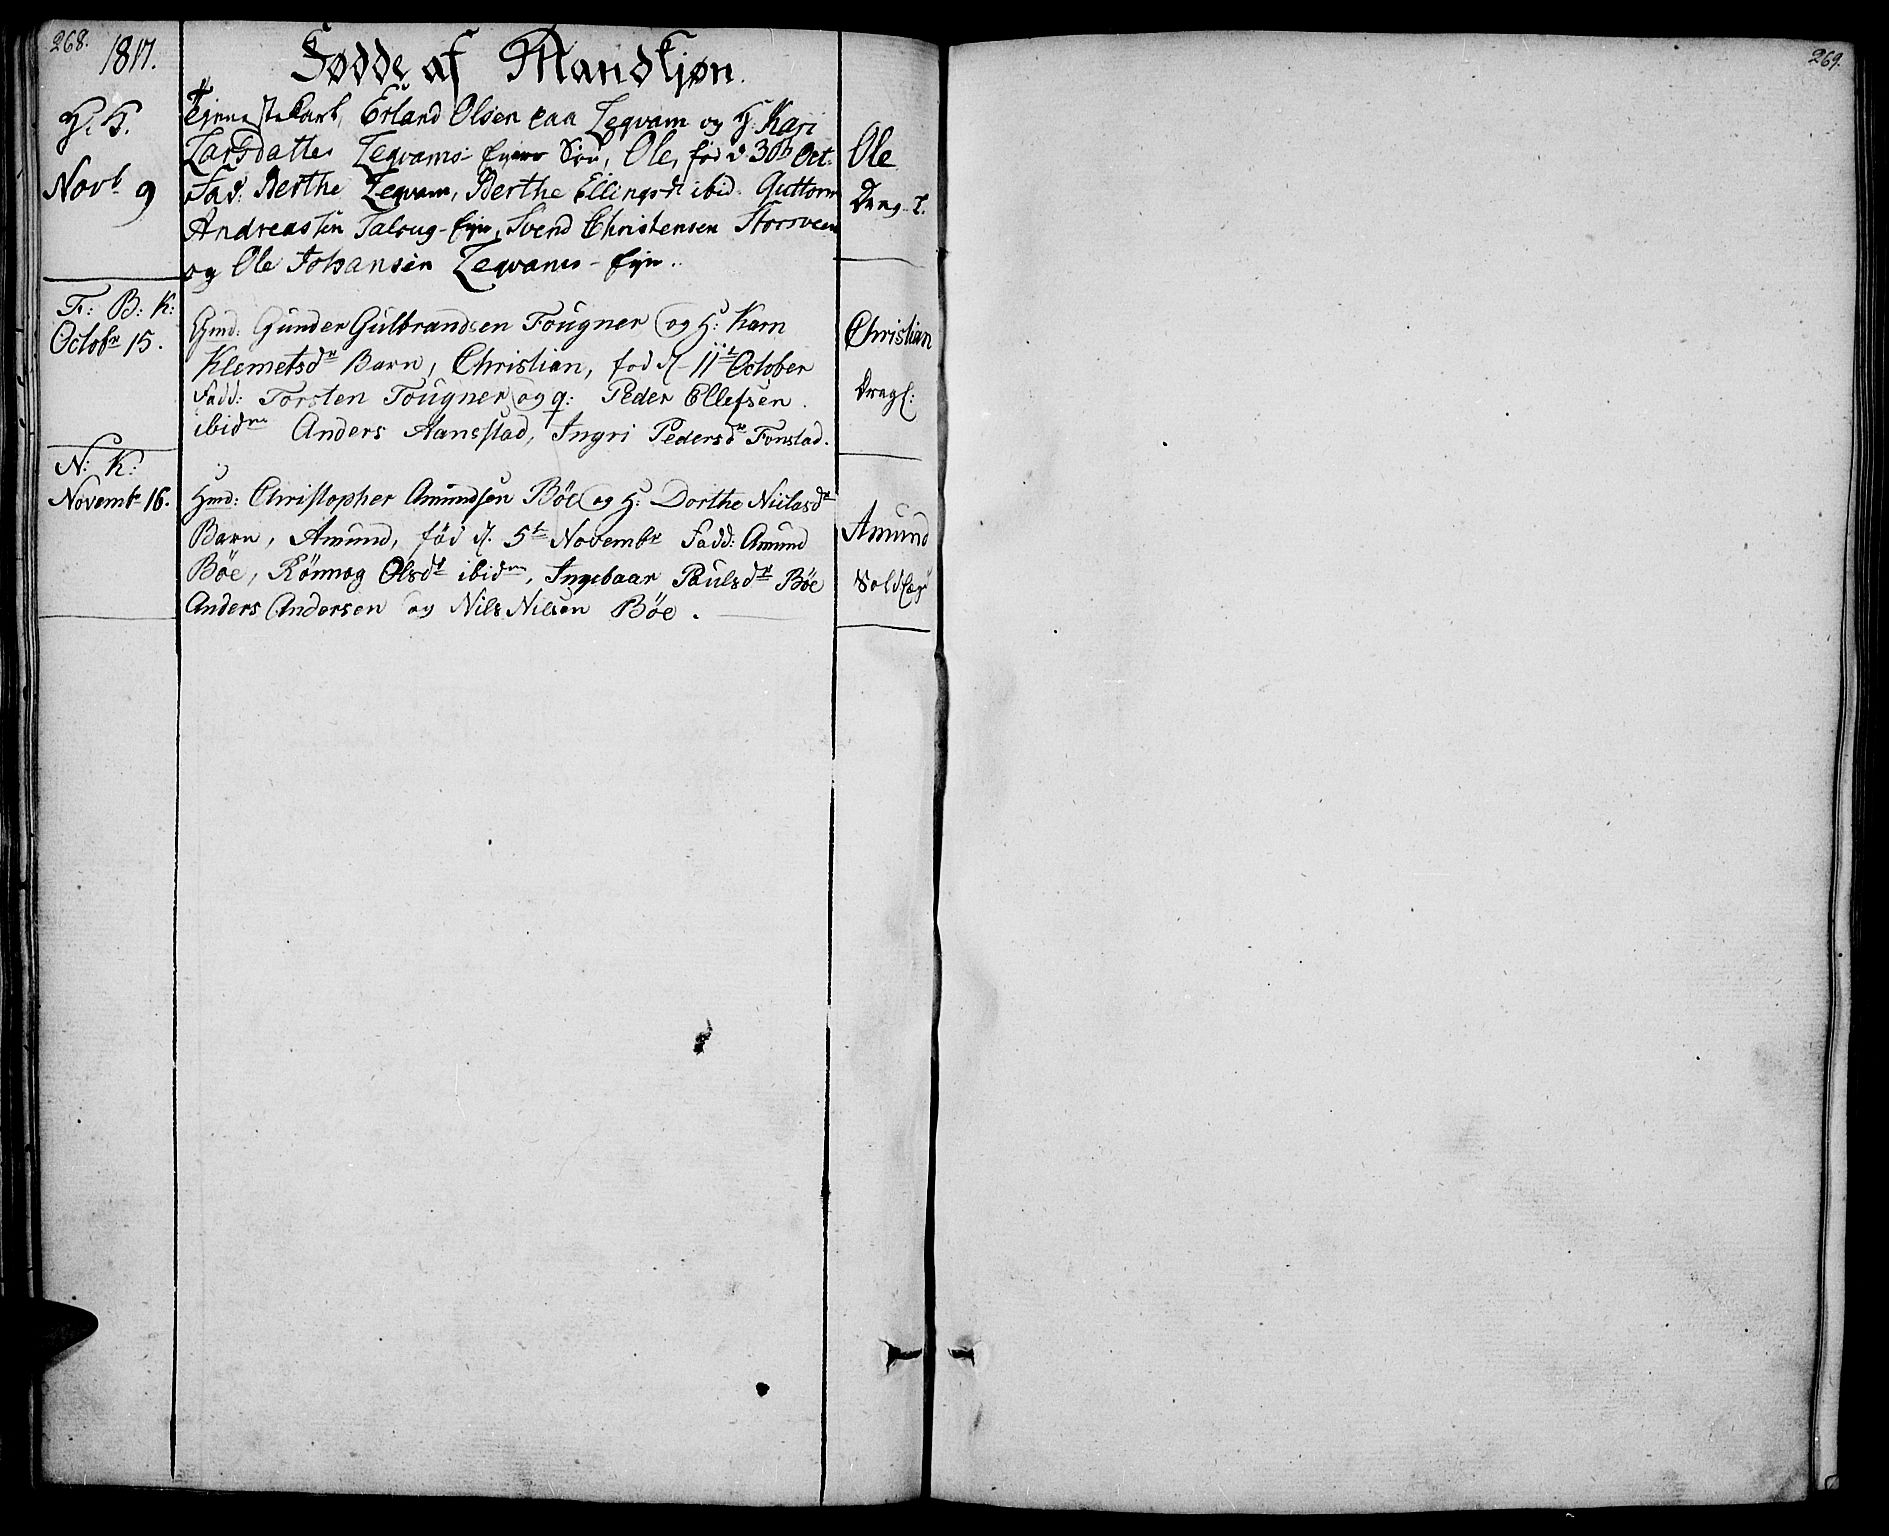 268.
1817.
Fødde af Mandkjøn.
H. K.
Novb 9
Tjenestekarl Erland Olsen paa Legvam og H. Kari
Larsdatter Legvams-Eyes Søn, Ole, fød d 30te Oct.
Fad: Berthe Legvam, Berthe Ellingsdr ibid. Guttorm
Andreassen Talsug-Eje, Svend Christensen Storsveen
og Ole Johansen Legvams-Eje.
Ole
Drag. L.
F: B: K:
Octobr 15.
Gmd: Gunder Gulbrandsen Tougner og H: Karn
Klemetsdr Barn, Christian, fød d. 11te October
Fadd: Torsten Tougner og q: Peder Ellefsen
ibidm Anders Aansstad, Ingri Pedersdr Fonstad.
Christian
Dragl:
N: K:
Novembr 16.
Hmd: Christopher Amundsen Böe og H: Dorthe Niilsdr
Barn, Amund, föd d. 5te Novembr Fadd: Amund
Böe, Rönnog Olsdr ibidm, Ingebaar Paulsdr Böe
Anders Andersen og Nils Nilsen Böe.
Amund
Soldlæg
269.